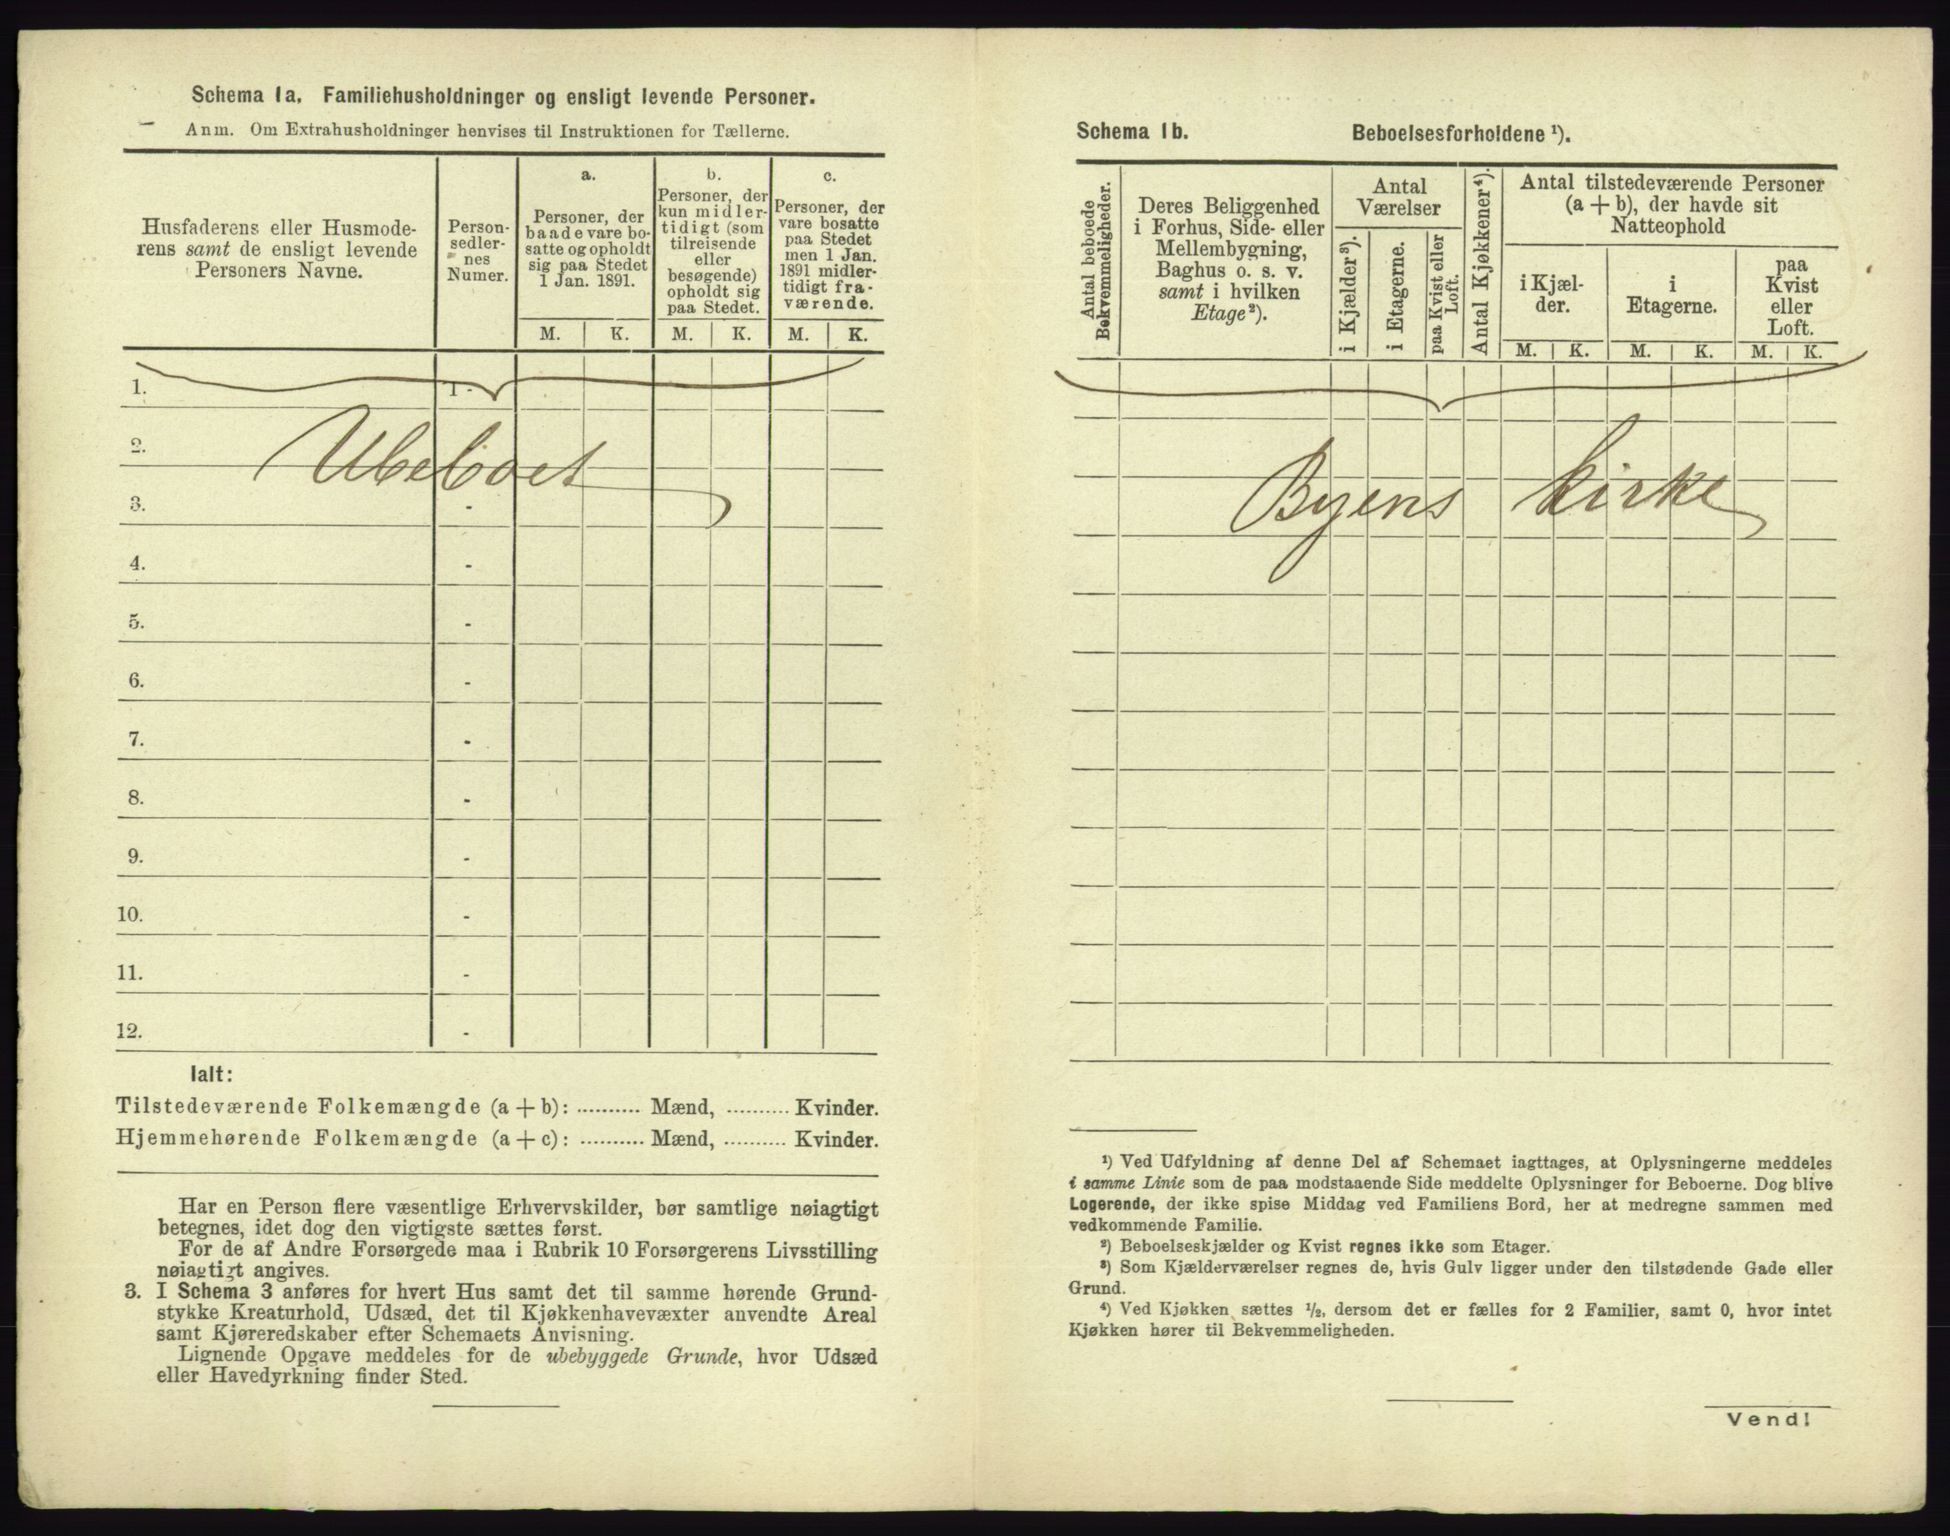 Schema 1a. Familiehusholdninger og ensligt levende Personer.
Anm. Om Extrahusholdninger henvises til Instruktionen for Tællerne.
Husfaderens eller Husmode-
rens samt de ensligt levende
Personers Navne.
Person-
sedler-
nes
Numer.
a.
Personer, der
baade vare bo-
satte og opholdt
sig paa Stedet
1 Jan. 1891.
b.
Personer, der
kun midler-
tidigt (som
tilreisende
eller
besøgende)
opholdt sig
paa Stedet.
c.
Personer, der
vare bosatte
paa Stedet
men 1 Jan.
1891 midler-
tidigt fra-
værende.
M. K. M. K. M. K.
1. 1 -
2.
Ubeboet
3. -
4. -
5. -
6. -
7. -
8. -
9. -
10. -
11. -
12. -
Ialt:
Tilstedeværende Folkemængde (a + b): .......... Mænd, .......... Kvinder.
Hjemmehørende Folkemængde (a + c): .......... Mænd, .......... Kvinder.
Har en Person flere væsentlige Erhvervskilder, bør samtlige nøiagtigt
betegnes, idet dog den vigtigste sættes først.
For de af Andre Forsørgede maa i Rubrik 10 Forsørgerens Livsstilling
nøiagtigt angives.
3. I Schema 3 anføres for hvert Hus samt det til samme hørende Grund-
stykke Kreaturhold, Udsæd, det til Kjøkkenhavevæxter anvendte Areal
samt Kjøreredskaber efter Schemaets Anvisning.
Lignende Opgave meddeles for de ubebyggede Grunde, hvor Udsæd
eller Havedyrkning finder Sted.
Schema 1b. Beboelsesforholdene ¹).
Antal beboede
Bekvemmeligheder.
Deres Beliggenhed
i Forhus, Side- eller
Mellembygning,
Baghus o. s. v.
samt i hvilken
Etage²).
Antal
Værelser
i Kjælder³).
i Etagerne.
paa Kvist eller
Loft.
Antal Kjøkkener⁴).
Antal tilstedeværende Personer
(a + b), der havde sit
Natteophold
i Kjæl-
der.
i
Etagerne.
paa
Kvist
eller
Loft.
M. K. M. K. M. K.
Byens kirke
¹) Ved Udfyldning af denne Del af Schemaet iagttages, at Oplysningerne meddeles
i samme Linie som de paa modstaaende Side meddelte Oplysninger for Beboerne. Dog blive
Logerende, der ikke spise Middag ved Familiens Bord, her at medregne sammen med
vedkommende Familie.
²) Beboelseskjælder og Kvist regnes ikke som Etager.
³) Som Kjælderværelser regnes de, hvis Gulv ligger under den tilstødende Gade eller
Grund.
⁴) Ved Kjøkken sættes ½, dersom det er fælles for 2 Familier, samt 0, hvor intet
Kjøkken hører til Bekvemmeligheden.
Vend!